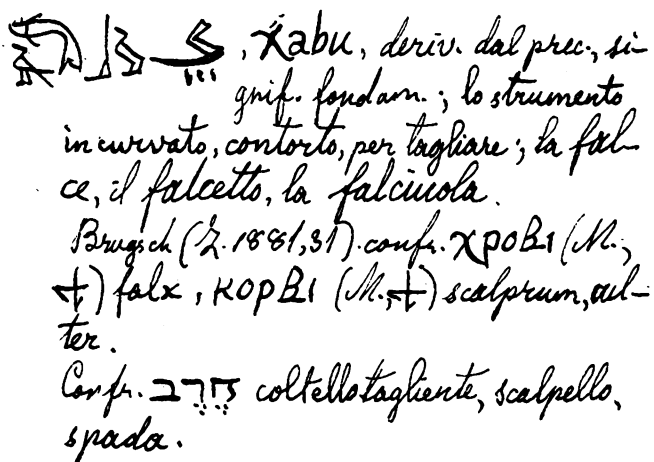 , χabu, deriv. dal prec., si-
gnif. fondam.; lo strumento
incurvato, contorto, per tagliare; la fal-
ce, il falcetto, la falciuola.
Brugsch (Z. 1881,31). confr. ⲭⲣⲟⲃⲓ (M.,
✢) falx, ⲕⲟⲣⲃⲓ (M., ✢) scalprum, cul-
ter.
Confr. חֶרֶב coltello tagliente, scalpello,
spada.